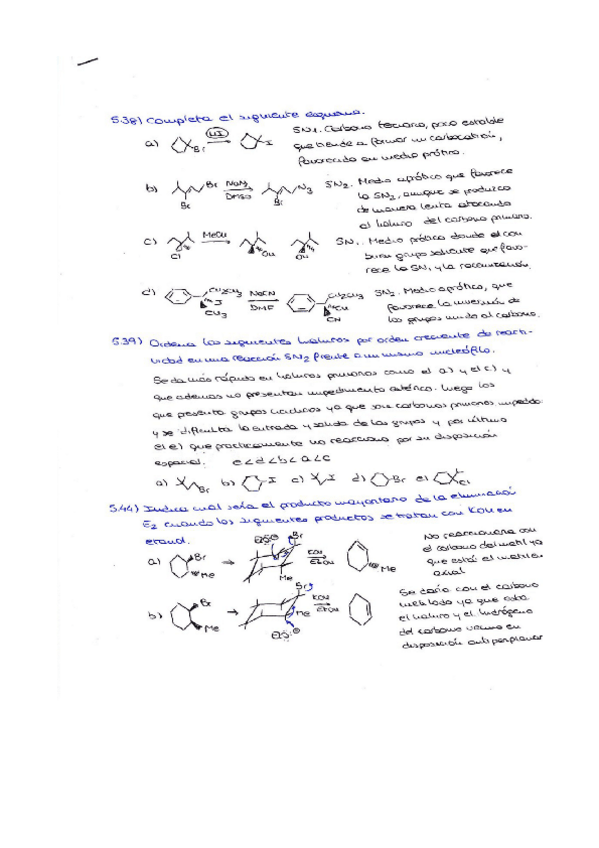 5.38) Completa el siguiente esquema.
a) Br → HI → I SN1. Carbono terciario, poco estable
que tiende a formar un carbocatión,
favorecido en medio prótico.
b) Br Br NaN3 DMSO Br N3 SN2. Medio aprótico que favorece
la SN2, aunque se produzca
de manera lenta atacando
el haluro del carbono primario.
c) Cl MeOH SN1. Medio prótico donde el con
buen grupo saliente que favo-
rece la SN1 y la racemización.
d) CH2CH3 I CH3 NaCN DMF CH2CH3 CN SN2. Medio aprótico, que
favorece la inversión de
los grupos unido al carbono.
5.39) Ordena los siguientes haluros por orden creciente de reacti-
vidad en una reacción SN2 frente a un mismo nucleófilo.
Se da más rápido en haluros primarios como el a) y el c) y
que además no presentan impedimento estérico. Luego los
que presenta grupos ya que son carbonos primarios impedido
y se dificulta la entrada y salida de los grupos y por último
el e) que practicamente no reacciona por su disposición
espacial. e<d<b<a<c
a) Br b) I c) I d) Br e) Cl
5.44) Indica cual sería el producto mayoritario de la eliminación
E2 cuando los siguientes productos se tratan con KOH en
etanol.
a) Br Me → Br Me KOH EtOH Me No reaccionaria con
el carbono del metil ya
que está el metil en
axial
b) Br Me → Br KOH EtOH Se daría con el carbono
metilado ya que está
el haluro y el hidrógeno
del carbono vecino en
disposición antiperiplanar